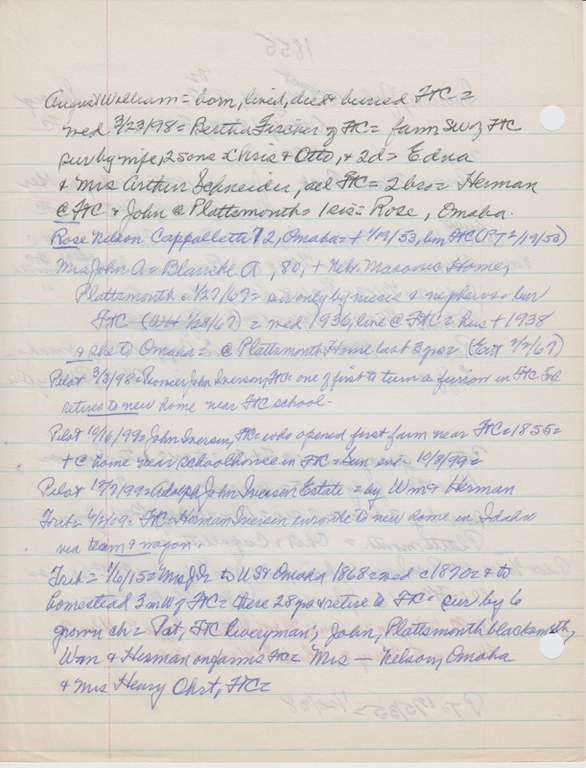 August William = born, lived, died & buried FtC =
med 2/23/98 = Bertha Fischer of FtC = farm SW of FtC
sur by wife, 2 sons = Chris & Otto, & 2 d = Edna
& Mrs Arthur Schneider, all FtC = 2 bro = Herman
@ FtC & John @ Plattsmouth = 1 sis = Rose, Omaha.
Rose Nelson Cappellette 72, Omaha = + 1/19/53, bur FtC (PT 2/19/53)
Mrs John A = Blanche A, 80, + Nebr. Masonic Home,
Plattsmouth 1/27/67 = sur only by nieces & nephews = bur
FtC (WH 1/28/67) = med 1936, live @ FtC = hus + 1938
& she to Omaha = @ Plattsmouth Home last 3 yrs = (Ent 2/2/67)
Pilot 3/3/98 = Pioneer John Iverson, FtC = one of first to turn a furrow in FtC
retires to new home near FtC school.
Pilot 10/16/99 = John Iversen, FtC = who opened first farm near FtC = 1855 =
+ @ home near schoolhouse in FtC = 10/8/99 =
Pilot 12/7/99 = of John Iversen Estate = by Wm & Herman
Trib = FtC = Herman Iversen enroute to new home in Idaho
via team & wagon.
Trib = 1/6/15 = Mrs J Iv to US & Omaha 1868 = med c1870 = & to
homestead 3 m W of FtC = there 28 yrs & retire to FtC = sur by 6
grown ch = Pat, FtC liveryman; John, Plattsmouth blacksmith,
Wm & Herman on farms FtC = Mrs — Nelson, Omaha
& Mrs Henry Ohrt, FtC =